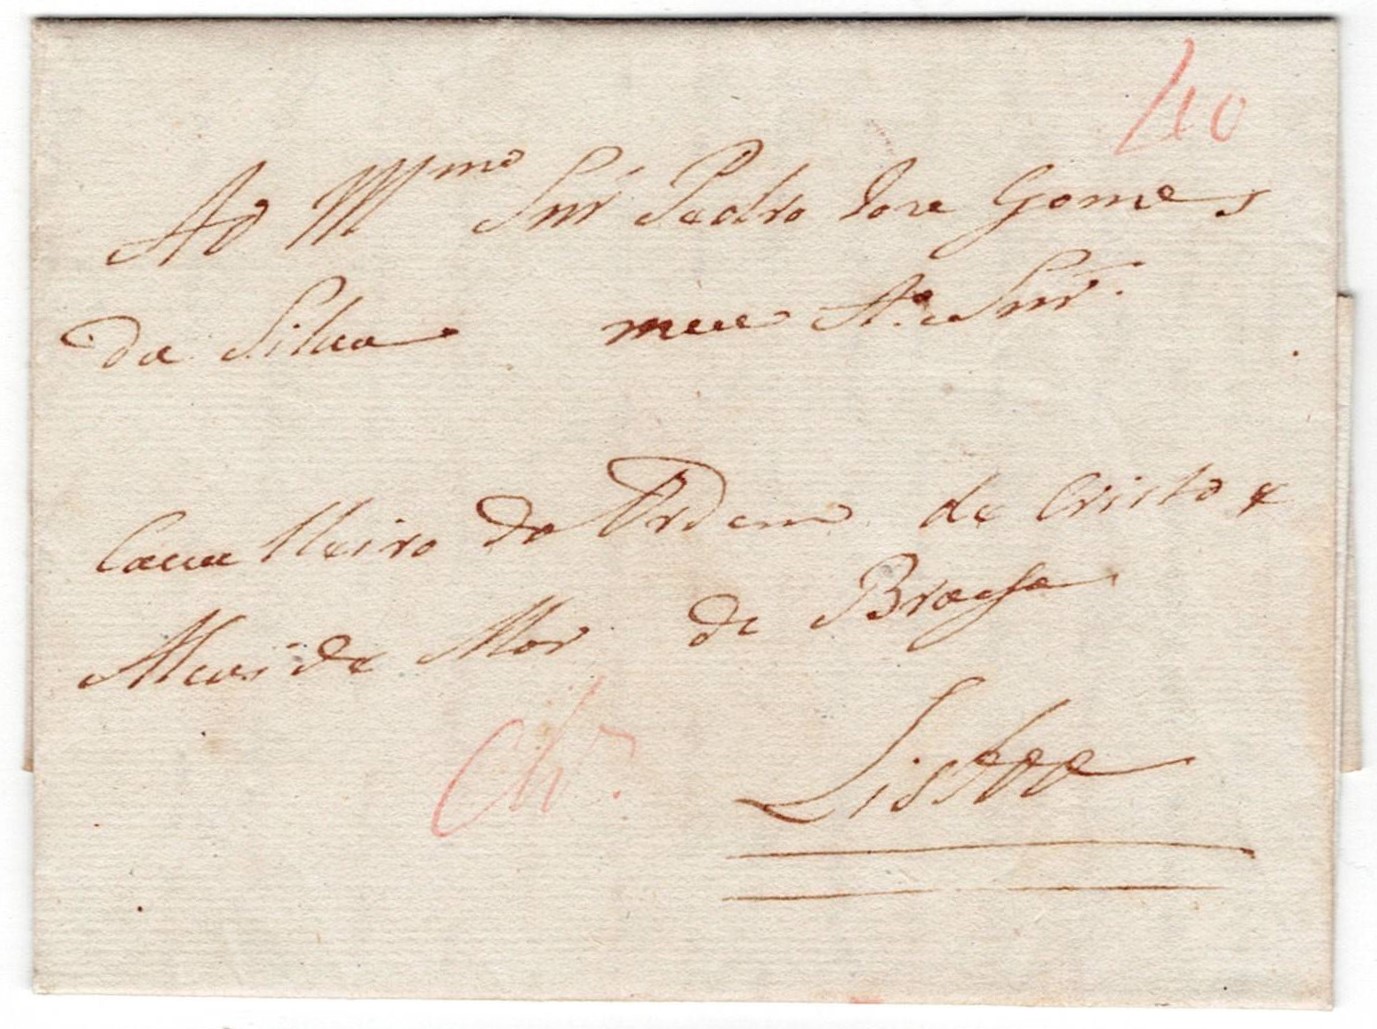 40
Ao Illmo Snr Pedro Jose Gomes
da Silva meu Ao. e Snr.
Cavalleiro da Ordem de Cristo e
Alcaide Mor de Braga
Lisboa